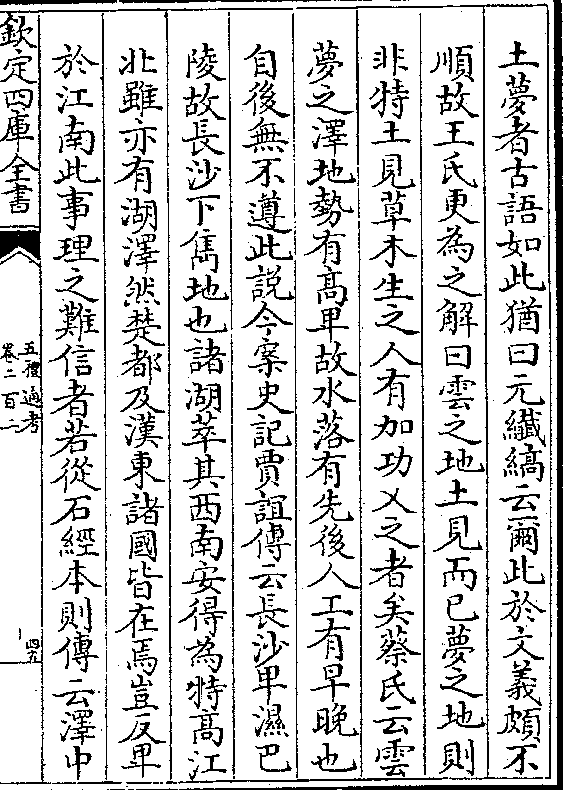 土夢者古語如此猶曰元纎縞云爾此於文義頗不
順故王氏更為之解曰雲之地土見而已夢之地則
非特土見草木生之人有加功乂之者矣蔡氏云雲
夢之澤地勢有髙卑故水落有先後人工有早晚也
自後無不遵此説今案史記賈誼傳云長沙卑濕巴
陵故長沙下雋地也諸湖萃其西南安得為特髙江
北雖亦有湖澤然楚都及漢東諸國皆在焉豈反卑
於江南此事理之難信者若從石經本則傳云澤中
欽定四庫全書
五禮通考
卷二百二
四九